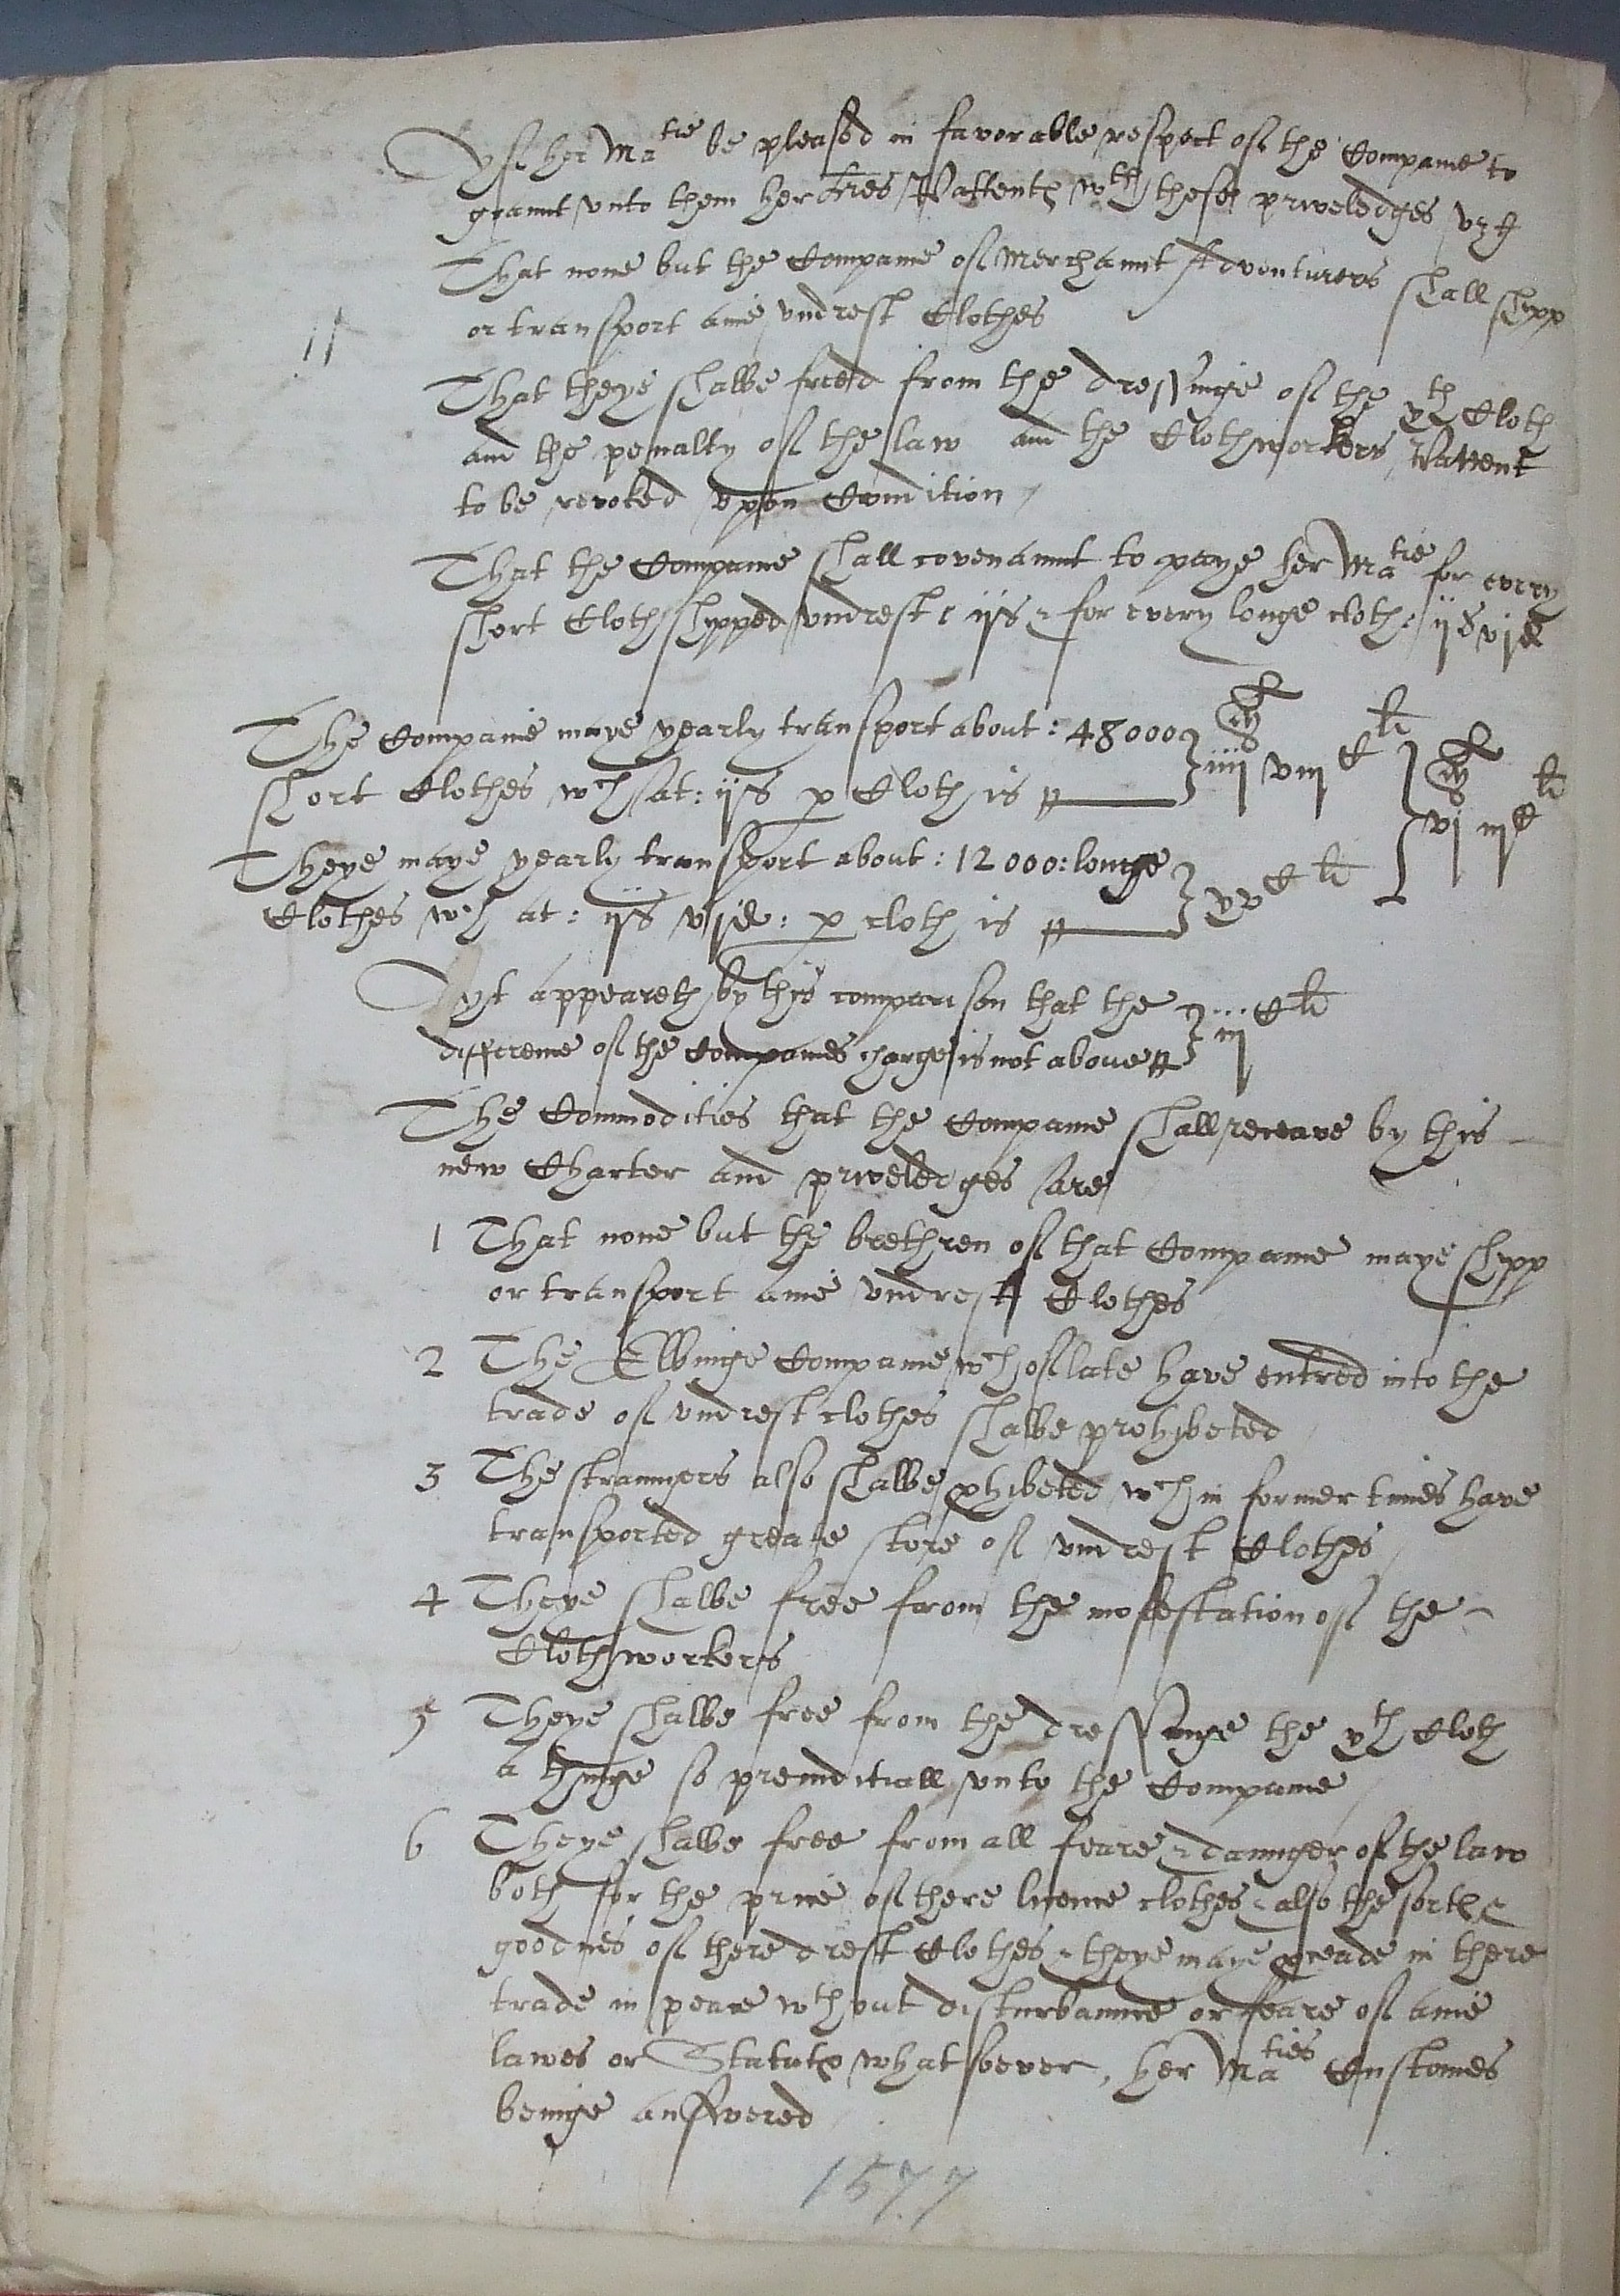 Yf her Matie be pleased in favorable respect of the Companie to
graunt unto them her lres Pattentes wth these priveledges vzt
That none but the Companie of Merchaunt Adventurers shall shipp
or transport anie undrest Clothes
11
That theye shalbe freed from the dressinge of the xth Cloth
and the penalty of the law and the Clothworkers Pattent
to be revoked upon Condition
That the Companie shall covenaunt to paye her Matie for every
short Cloth shipped undrest : ijs & for every longe cloth : ijs vjd
The Companie maye yearly transport about : 48000
short Clothes wch at : ijs p Cloth is iiij M viij C li
vj M iij C li
Theye maye yearly transport about : 12000 : longe
Clothes wch at : ijs vjd : p cloth is xv C li
Yt appeareth by this comparison that the
differenc of the Companies charge is not above iij C li
The Commodities that the Companie shall receave by this
new Charter and priveledges are
1 That none but the brethren of that Companie maye shipp
or transport anie undrest Clothes
2 The Elbinge Companie wch of late have entred into the
trade of undrest clothes shalbe prohibeted
3 The straungers also shalbe phibeted wch in former times have
transported greate store of undrest Clothes
4 Theye shalbe free from the molestation of the
Clothworkers
5 Theye shalbe free from the dressinge the xth Cloth
a thinge so preiuditiall unto the Companie
6 Theye shalbe free from all feare & daunger of the law
both for the price of there licence clothes & also the sortes &
goodnes of there drest Clothes & theye maye pceade in there
trade in peace wthout disturbaunce or feare of anie
lawes or Statutes whatsoever, her Maties Customes
beinge answered
1577